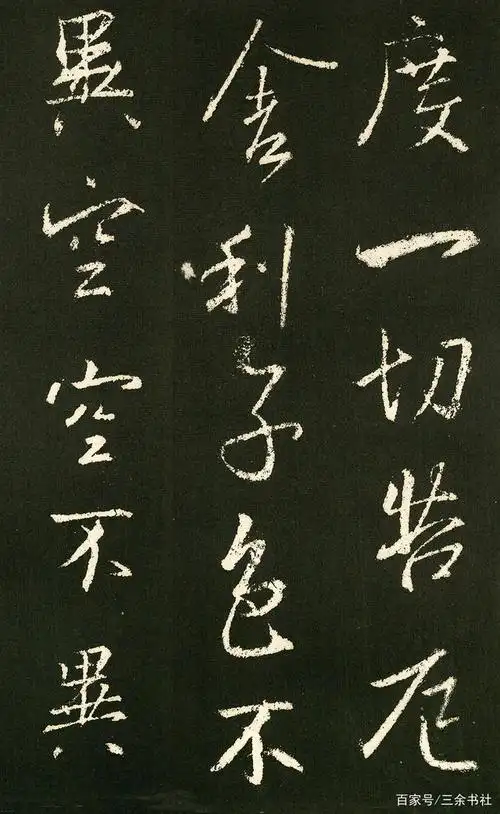 度一切苦厄
舍利子色不
異空空不異
百家号/三余书社